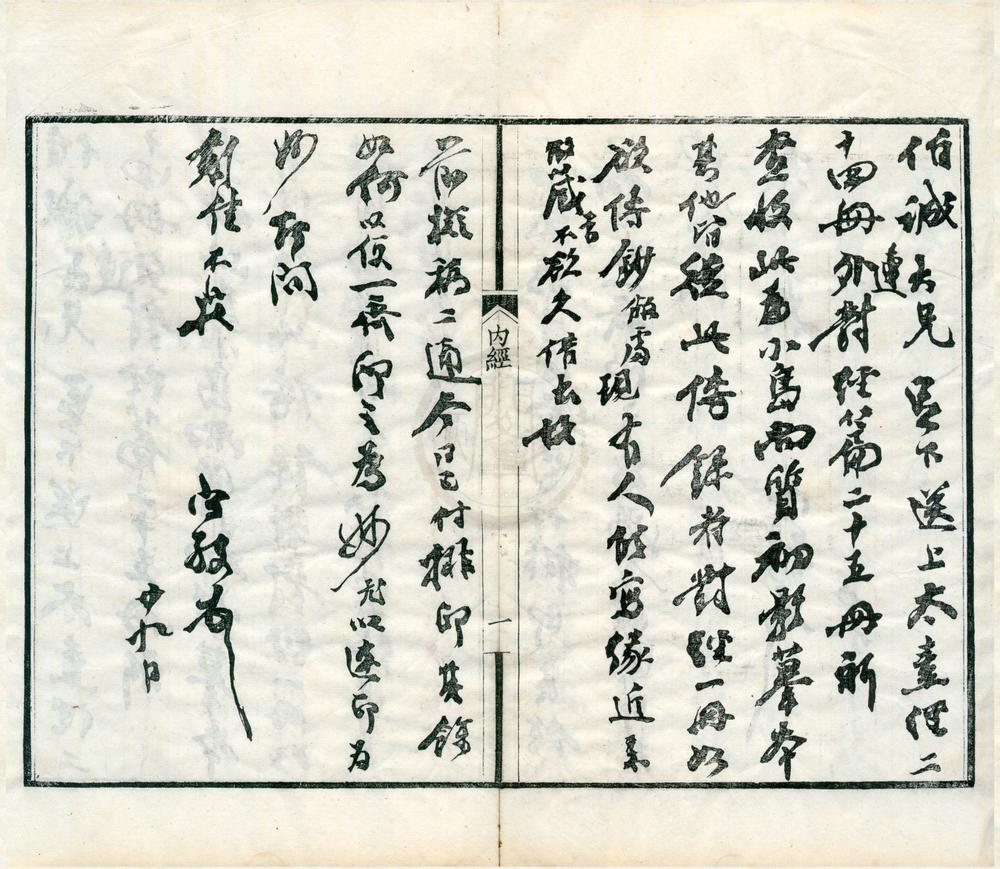 伯誠大兄足下送上太素經二
十四冊外連對經篇二十五冊祈
查收此為小島尚質初影摹本
其他皆從此傳錄者對經一冊如
欲傳鈔敝處現有人能寫緣近來
藏書不欲久借出故
前擬稿二通今日已付排印其餘
如何以便一齊印之為妙尤以速印為
妙即問
劉佳不
守敬
十九日
內經
一